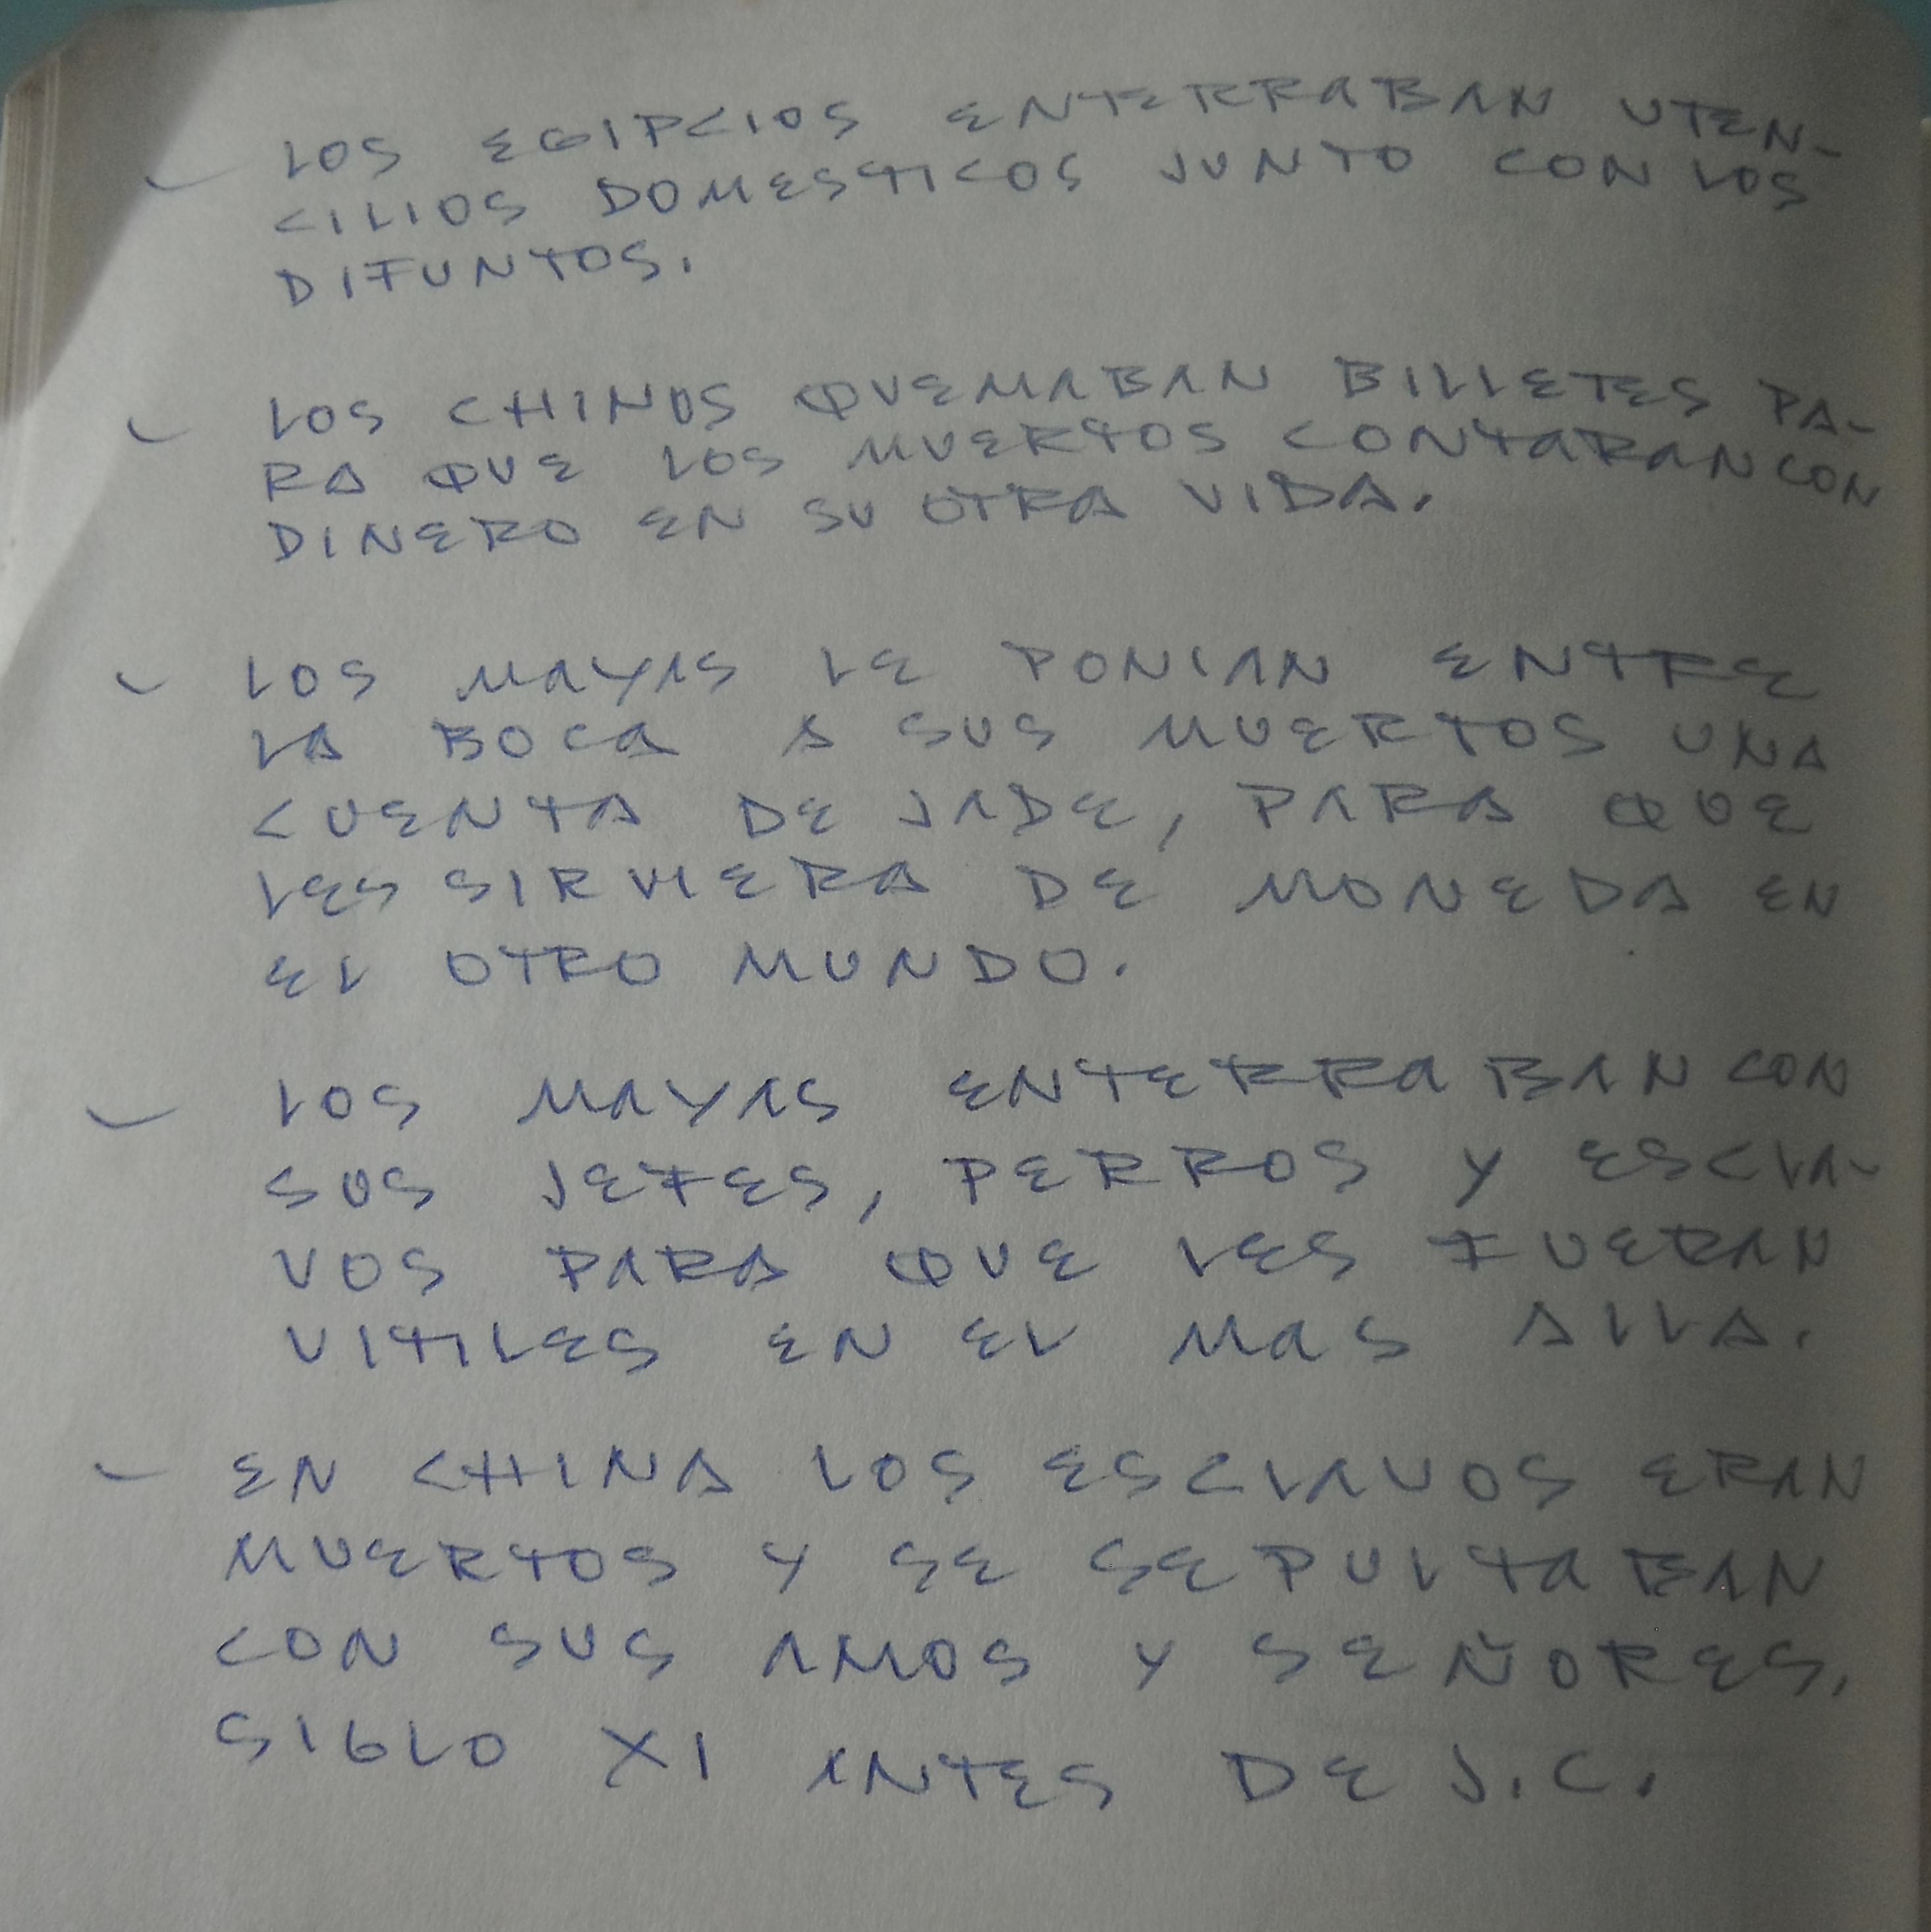 - LOS EGIPCIOS ENTERRABAN UTEN-
CILIOS DOMESTICOS JUNTO CON LOS
DIFUNTOS.
- LOS CHINOS QUEMABAN BILLETES PA-
RA QUE LOS MUERTOS CONTARAN CON
DINERO EN SU OTRA VIDA.
- LOS MAYAS LE PONIAN ENTRE
LA BOCA A SUS MUERTOS UNA
CUENTA DE JADE, PARA QUE
LES SIRVIERA DE MONEDA EN
EL OTRO MUNDO.
- LOS MAYAS ENTERRABAN CON
SUS JEFES, PERROS Y ESCLA-
VOS PARA QUE LES FUERAN
UITILES EN EL MAS ALLA.
- EN CHINA LOS ESCLAVOS ERAN
MUERTOS Y SE SEPULTABAN
CON SUS AMOS Y SEÑORES,
SIGLO XI ANTES DE J.C.